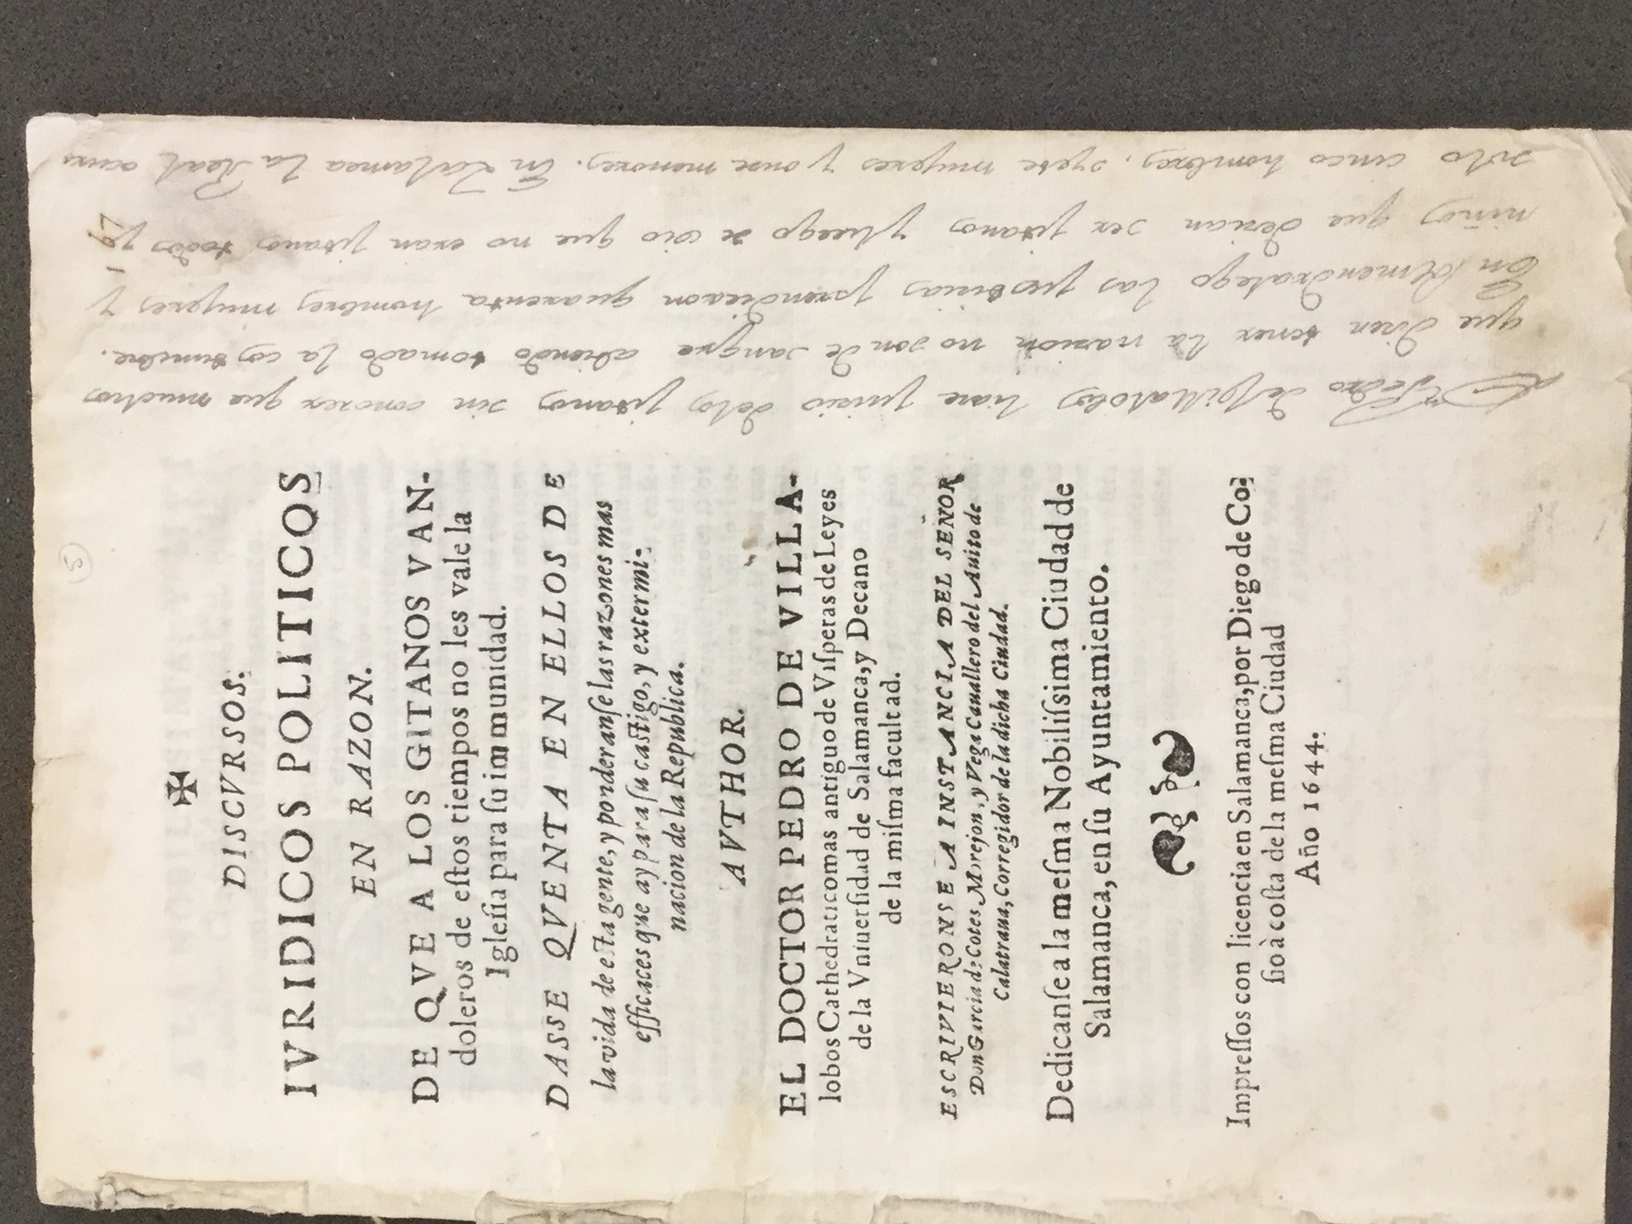 DISCVRSOS:
IVRIDICOS POLITICOS
EN RAZON.
DE QVE A LOS GITANOS VAN-
doleros de eſtos tiempos no les vale la
Igleſia para ſu immunidad.
DASSE QVENTA EN ELLOS DE
la vida de eſta gente, y ponderanſe las razones mas
efficaces que ay para ſu caſtigo, y extermi-
nacion de la Republica.
AVTHOR.
EL DOCTOR PEDRO DE VILLA-
lobos Cathedratico mas antiguo de Viſperas de Leyes
de la Vniuerſidad de Salamanca, y Decano
de la miſma facultad.
ESCRIVIERONSE A INSTANCIA DEL SEÑOR
Don Garcia de Cotes, Morejon, y Vega Cauallero del Auito de
Calatraua, Corregidor de la dicha Ciudad.
Dedicanſe a la meſma Nobiliſsima Ciudad de
Salamanca, en ſu Ayuntamiento.
Impreſſos con licencia en Salamanca, por Diego de Co-
ſio à coſta de la meſma Ciudad
Año 1644.
Pedro de Villalobos haze juizio delos jitanos sin conozer que muchos
que dizen tener la nazion no son de sangre abiendo tomado la costumbre.
En Almendralejo las justizias prendieron quarenta hombres mujeres y
niños que dezian ser jitanos y luego se vio que no eran jitanos todos y
solo cinco hombres, syete mujeres y onze menores. En Zalamea la Real
5